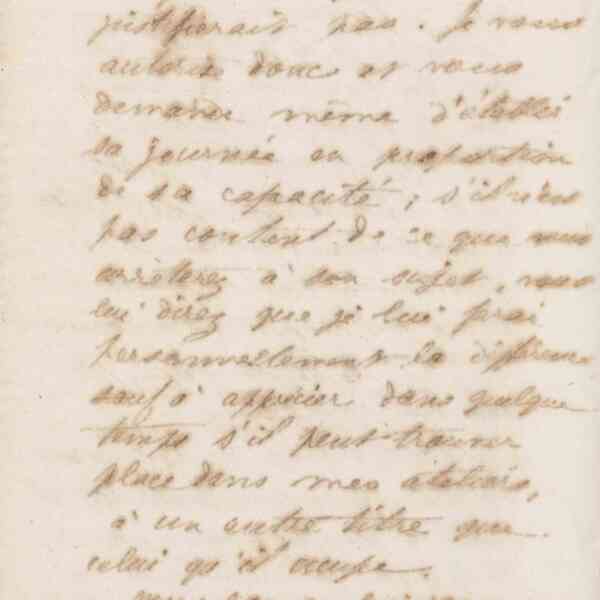 justifierait pas. Je vous
autorise donc et vous
demande même d'établir
sa journée en proportion
de sa capacité ; s'il n'est
pas content de ce que vous
arrêterez à son sujet, vous
lui direz que je lui ferai
personnellement la différence
sauf à apprécier dans quelque
temps s'il peut trouver
place dans mes ateliers,
à un autre titre que
celui qu'il occupe.